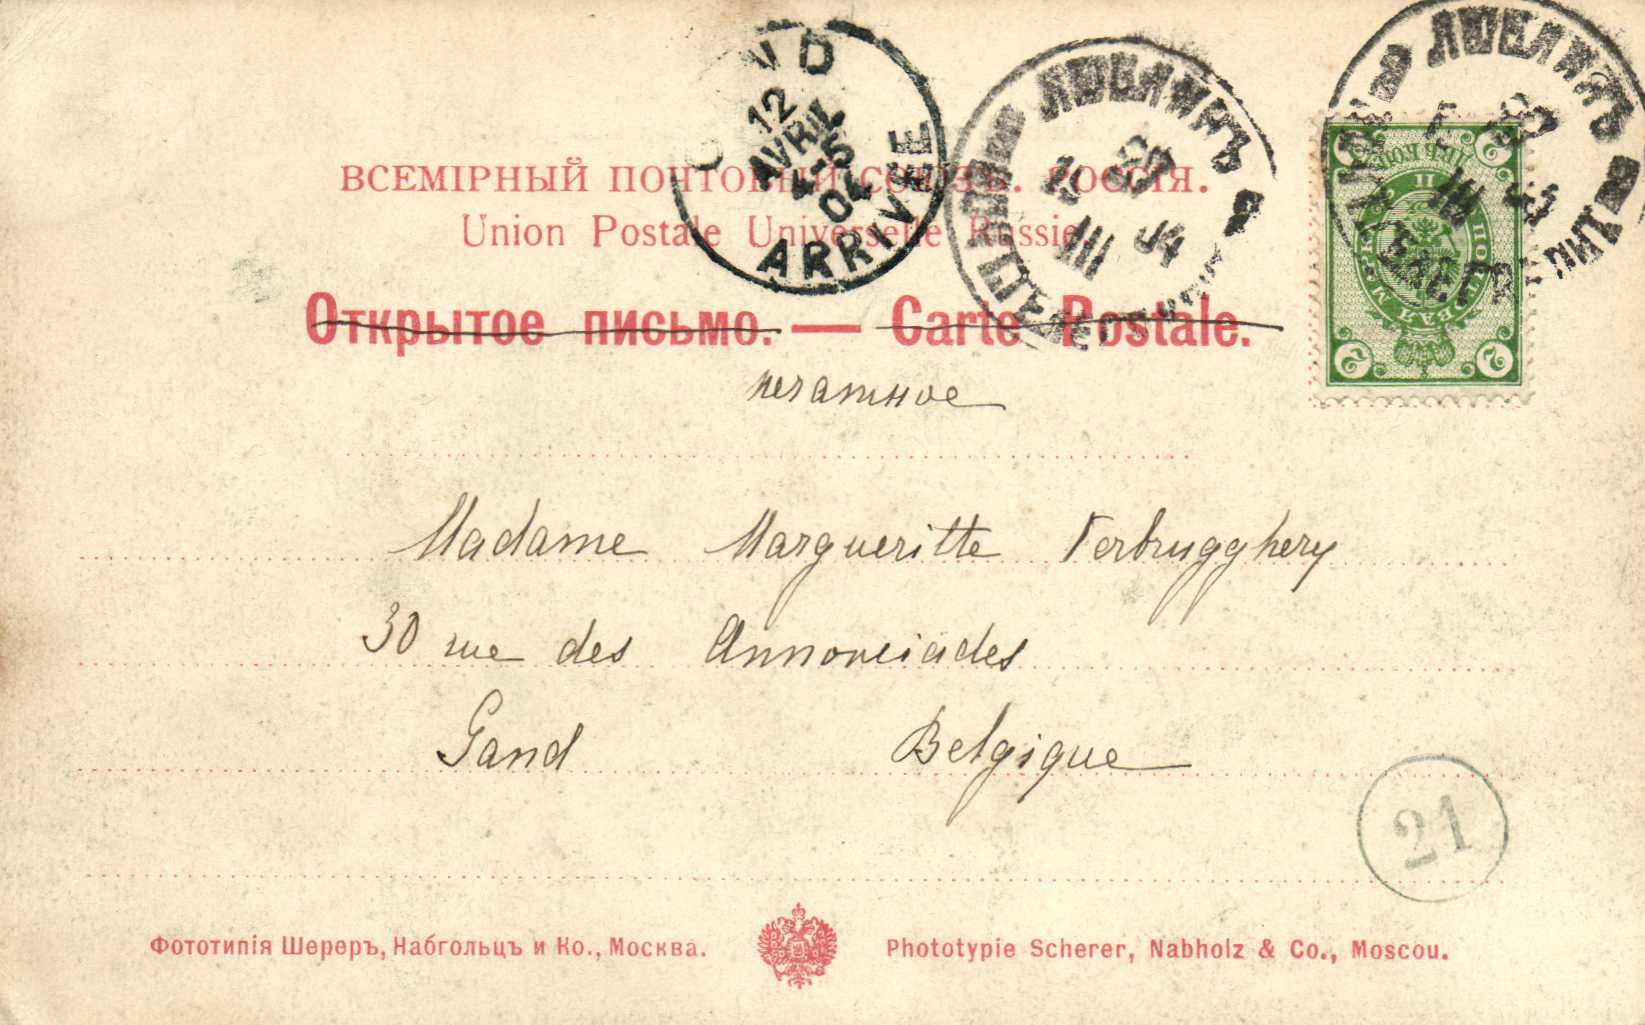 GAND
12
AVRIL
4-5
04
ARRIVÉE
ЛЮБЛИНЪ
III
04
ЛЮБЛИНЪ
III
ВСЕМІРНЫЙ ПОЧТОВЫЙ СОЮЗЪ. РОССІЯ.
Union Postale Universelle Russie.
Открытое письмо. — Carte Postale.
печатное
Madame Margueritte Verbrugghery
30 rue des Annonciades
Gand Belgique
2 2
21
Фототипія Шереръ, Набгольцъ и Ко., Москва.
Phototypie Scherer, Nabholz & Co., Moscou.